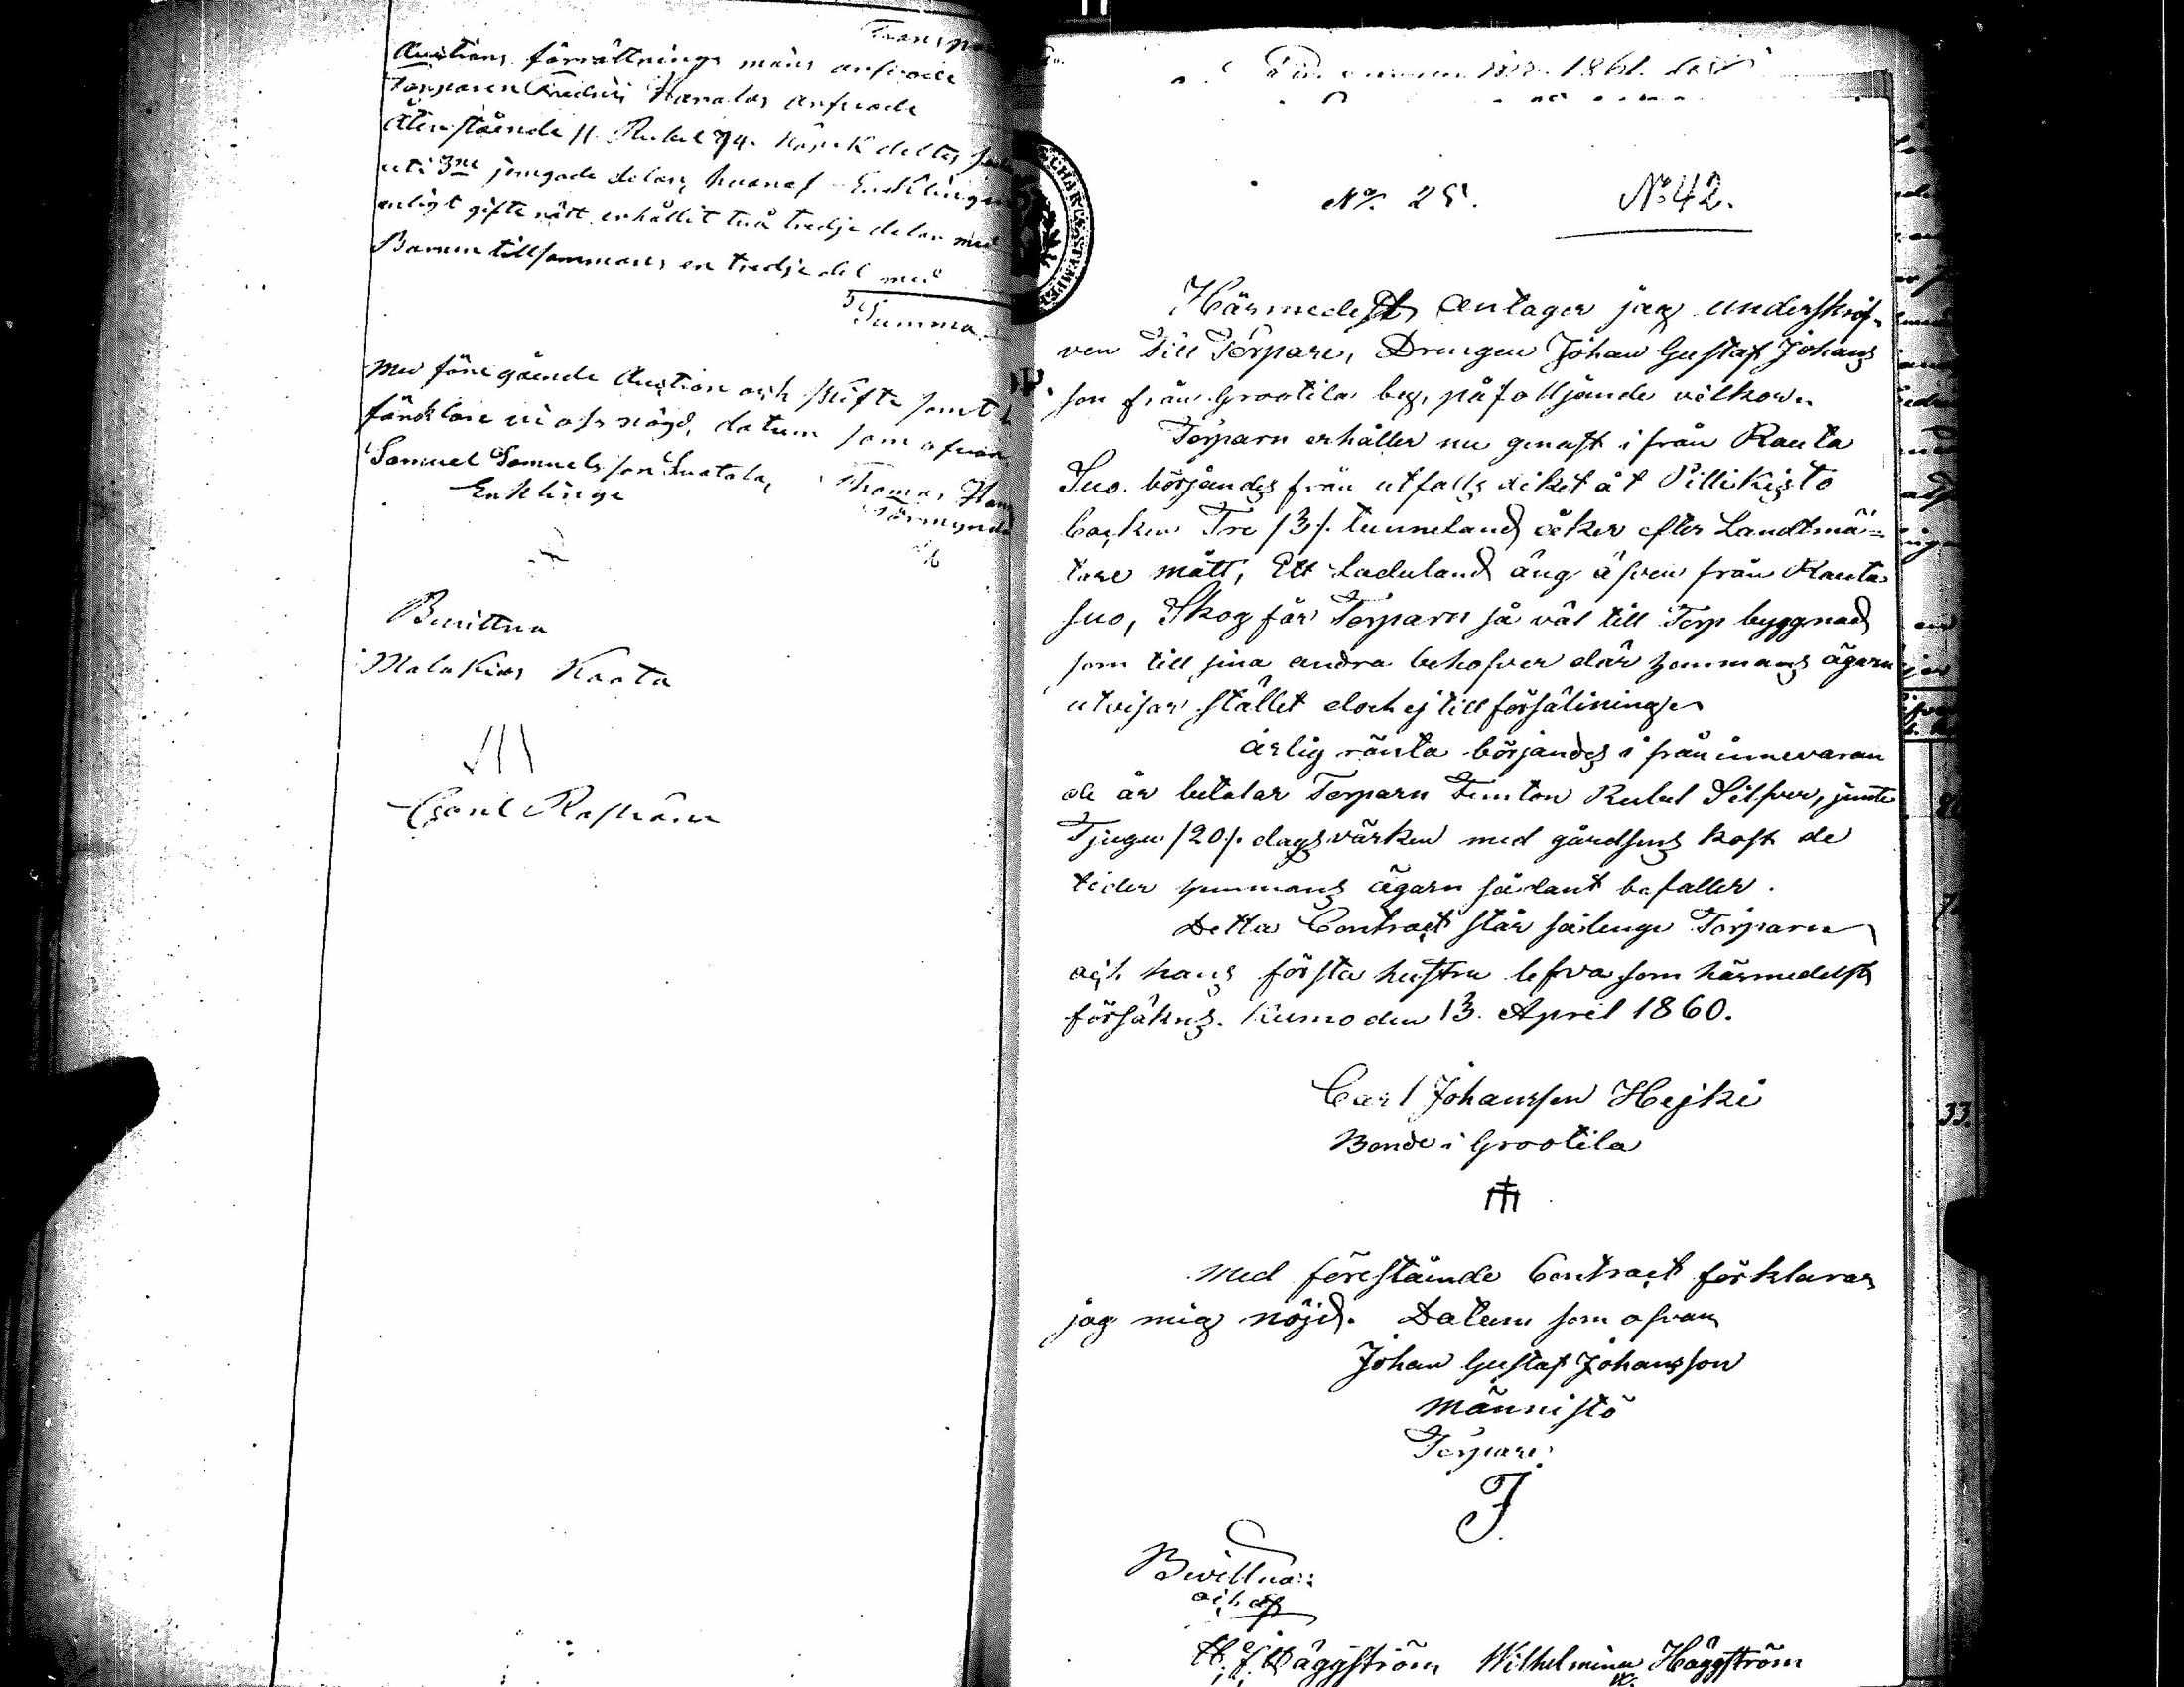 Auctions förrättnings mäns arfvode
Torparen Fredric Harolas arfvode
Återstående 11 Rubel 74 kopek deltes
uti 3ne jemgoda delar, hvaraf Enklingen
enligt gifto rätt erhållit två tredje delar med
Barnen tillsammans en tredjedel med
Summa
Med föregående Auction och skifte samt
förklare vi oss nögd, datum som ofvan
Samuel Samuelsson Thomas
Enklinge Förmynd
Bevittna
Malakias Kaata
1861.
No 25. No 42.
Härmedelst Antager jag underskrif-
ven Till Torpare, Drengen Johan Gustaf Johans
son från Grootila by, på följande vilkor.
Torparn erhåller nu genast i från Rauta
Suo. börjandes från utfalls diket åt Pillikisto
backen Tre /3/. tunneland åker efter Landtmä=
tare mått, Ett laduland äng äfven från Rauta
suo, Skog får Torparn så väl till Torp byggnad
som till sina andra behofver där hemmans ägarn
utvisar stället doch ej till försälining
årlig ränta börjandes i från innevaran
de år betalar Torparn Femton Rubel Silfver, jemte
Tjugu /20/. dagsvärken med gårdsens kost de
tider hemmans ägarn sådant befaller.
Detta Contract står sålenge Torparn
och hans första hustru lefva som härmedelst
försäkras. Kumo den 13. April 1860.
Carl Johansson Hejki
Bonde i Grootila
Med förestående Contract förklarar
jag mig nöjd. Datum som ofvan
Johan Gustaf Johansson
Männistö
Torpare
J
Bevittna:
Häggström Wilhelmina Häggström